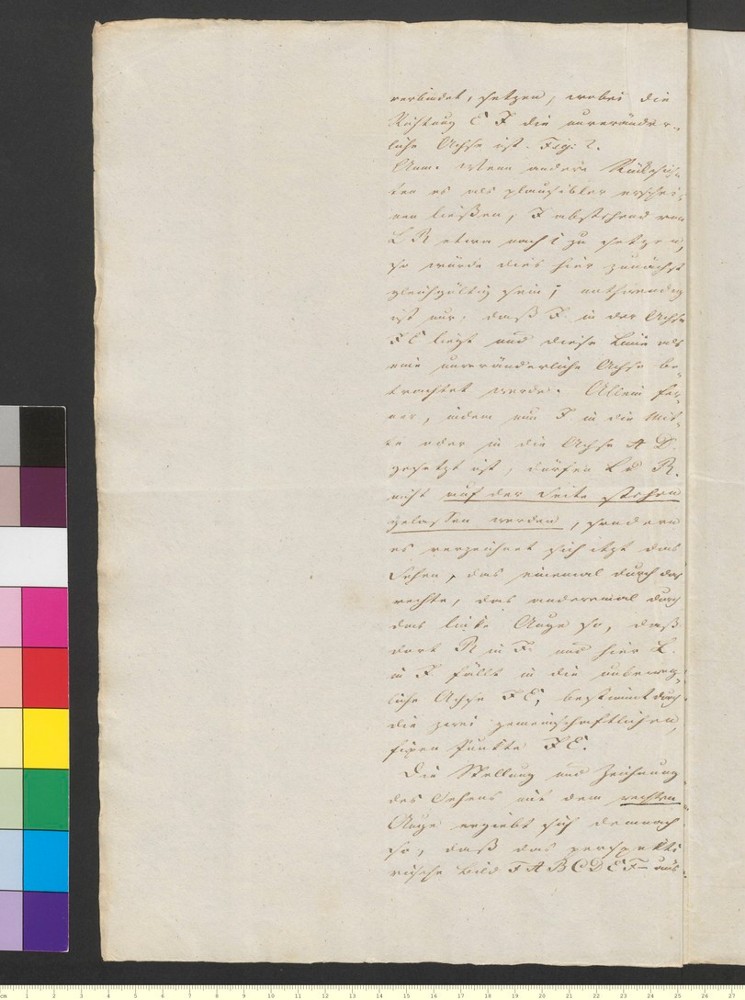 verbindet, setzen, wobei die
Richtung E F die unveränder-
liche Achse ist. Fig: 2.
Anm. Wenn andere Rücksich-
ten es als plausibler erschei-
nen ließen, F abstehend von
L R etwa nach i zu setzen,
so würde dies hier zunächst
gleichgültig sein; nothwendig
ist nur, daß F. in der Achse
F E liegt und diese Linie als
eine unveränderliche Achse be-
trachtet werde. Allein fer-
ner, indem nun F in die Mit-
te oder in die Achse A D.
gesetzt ist, dürfen L u R.
nicht auf der Seite stehen
gelassen werden, sondern
es verzeichnet sich itzt das
Sehen, das einemal durch das
rechte, das anderemal durch
das linke Auge so, daß
dort R in F. und hier L.
in F. fällt in die unbeweg-
liche Achse F E, bestimmt durch
die zwei gemeinschaftlichen,
fixen Punkte F E.
Die Stellung und Zeichnung
des Sehens mit dem rechten
Auge ergiebt sich demnach
so, daß das perspekti
vische Bild F A B C D E F